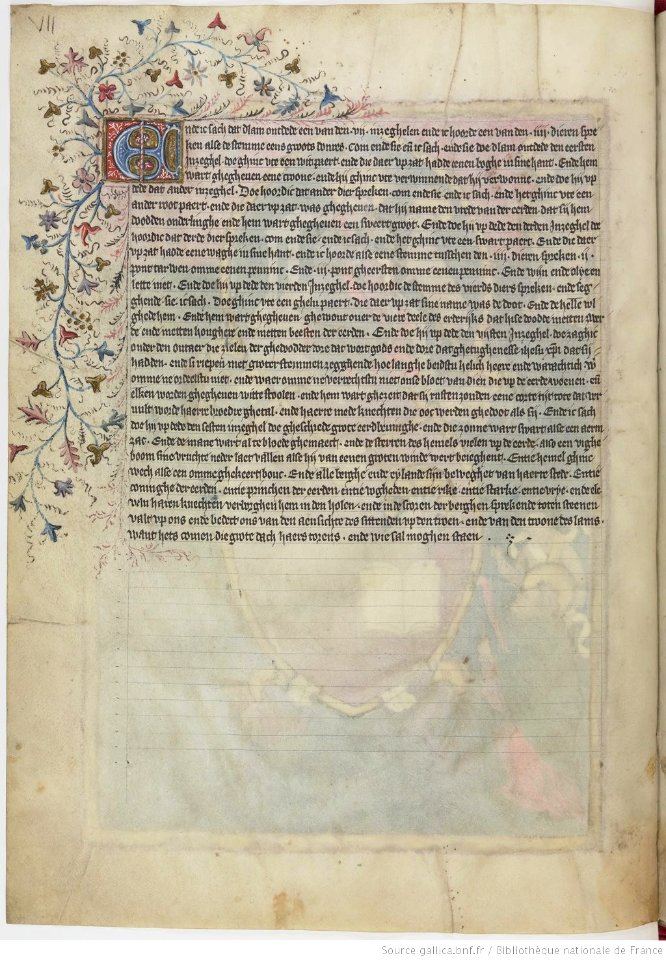 VII
Ende ic sach dat dlam ontdede een van den .vij. inzeghelen ende ic hoorde een van den .iiij. dieren spre
ken alse de stemme eens groots donres. Com ende sie en ic sach. ende sie doe dlam ontdede den eersten
inzeghel. doe ghinc vte een wit paert. ende die daer vp zat hadde eenen boghe in sine hant. Ende hem
wart ghegheuen eene croone. ende hij ghinc vte verwinnende dat hij verwonne. ende doe hij vp
dede dat ander inzeghel. Doe hoordic dat ander dier spreken. com ende sie. ende ic sach. ende het ghinc vte een
ander root paert. ende die daer vp zat. was ghegheuen. dat hij name den vrede van der eerden. dat sij hem
dooden onderlinghe ende hem wart ghegheuen een sweert groot. Ende doe hij vp dede den derden Inzeghel. do
hoordic dat derde dier spreken. com ende sie. ende ic sach. ende het ghinc vte een swart paert. Ende die daer
vp zat hadde eene waghe in sine hant. ende ic hoorde alse eene stemme tusschen den .iiij. dieren spreken .ij.
pont tarwen omme eenen penninc. Ende .iij. pont gheersten omme eenen penninc. Ende wijn ende olye en
lette niet. Ende doe hij vp dede den vierden Inzeghel. doe hoordic de stemme des vierds diers spreken. ende seg
ghende. sie. ic sach. Doe ghinc vte een ghelu paert. die daer vp zat sine name was de doot. Ende de helle vol
ghede hem. Ende hem wart ghegheuen ghewout ouer de viere deele des erderijks dat hise doode metten swer
de ende metten honghere ende metten beesten der eerden. Ende doe hij vp dede den vijsten Inzeghel. doe zaghic
onder den outaer die zielen der ghedodder dore dat wort gods ende dore dat ghetughenesse ihesu cristi. dat sij
hadden. ende si riepen met groter stemmen zegghende hoe langhe bendstu helich heere ende warachtich
omme ne ordeelstu niet. ende waeromme ne verrechts niet onse bloet van dien die vp de eerde woenen. en
elken worden ghegheuen witte stoolen. ende hem wart ghezeit dat sij rusten zonden eene corte tijt tote dat ver
uult worde haerre broedre ghetal. ende haerre mede knechten die ooc werden ghedoot als sij. Ende ic sach
doe hij vp dede den sesten inzeghel doe ghesciede groet eerdbeuinghe. ende die zonne wart swart alse een aern
zac. Ende de mane wart al te bloede ghemaect. ende de sterren des hemels vielen vp de eerde. also een vighe
boom sine vruchte neder sact vallen alse hij van eenen groten winde wert beweghent. Entie hemel ghinc
wech alse een omme ghekeert bouc. Ende alle berghe ende eylande sijn beweghet van haerre stede. Entie
coninghe der eerden. entie princhen der eerden. entie voghede. entie rike. entie starke. entie vrye. ende ele
van hauen knechten verborghen hem in den holen. ende in de scoren der berghen sprekende toten steenen
valt vp ons ende bedect ons van den aensichte des sittenden vp den troen. ende van den troone des lams.
want hets comen die grote dach haers torens. ende wie sal moghen staen.
Source gallica.bnf.fr / Bibliothèque nationale de France